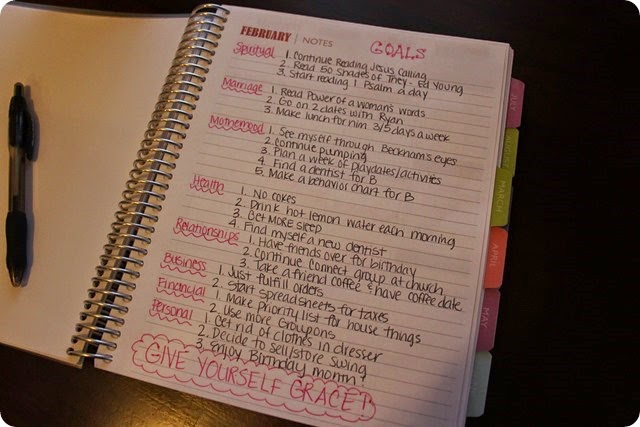 FEBRUARY | NOTES
GOALS
Spiritual 1. Continue Reading Jesus Calling
2. Read 50 Shades of They - Ed Young
3. Start reading 1 Psalm a day
Marriage 1. Read Power of a Woman's Words
2. Go on 2 dates with Ryan
3. Make lunch for him 3/5 days a week
Motherhood 1. See myself through Beckham's eyes
2. Continue pumping
3. Plan a week of playdates/activites
4. Find a dentist for B
5. Make a behavior chart for B
Health 1. No cokes
2. Drink hot lemon water each morning
3. Get MORE sleep
4. Find myself a new dentist
Relationships 1. Have friends over for birthday
2. Continue connect group at church
3. Take a friend coffee & have coffee date
Business 1. Just fulfill orders
2. Start spreadsheets for taxes
Financial 1. Make priority list for house things
2. Use more Groupons
Personal 1. Get rid of clothes in dresser
2. Decide to sell/store swing
3. Enjoy Birthday month!
GIVE YOURSELF GRACE!
MARCH
APRIL
MAY